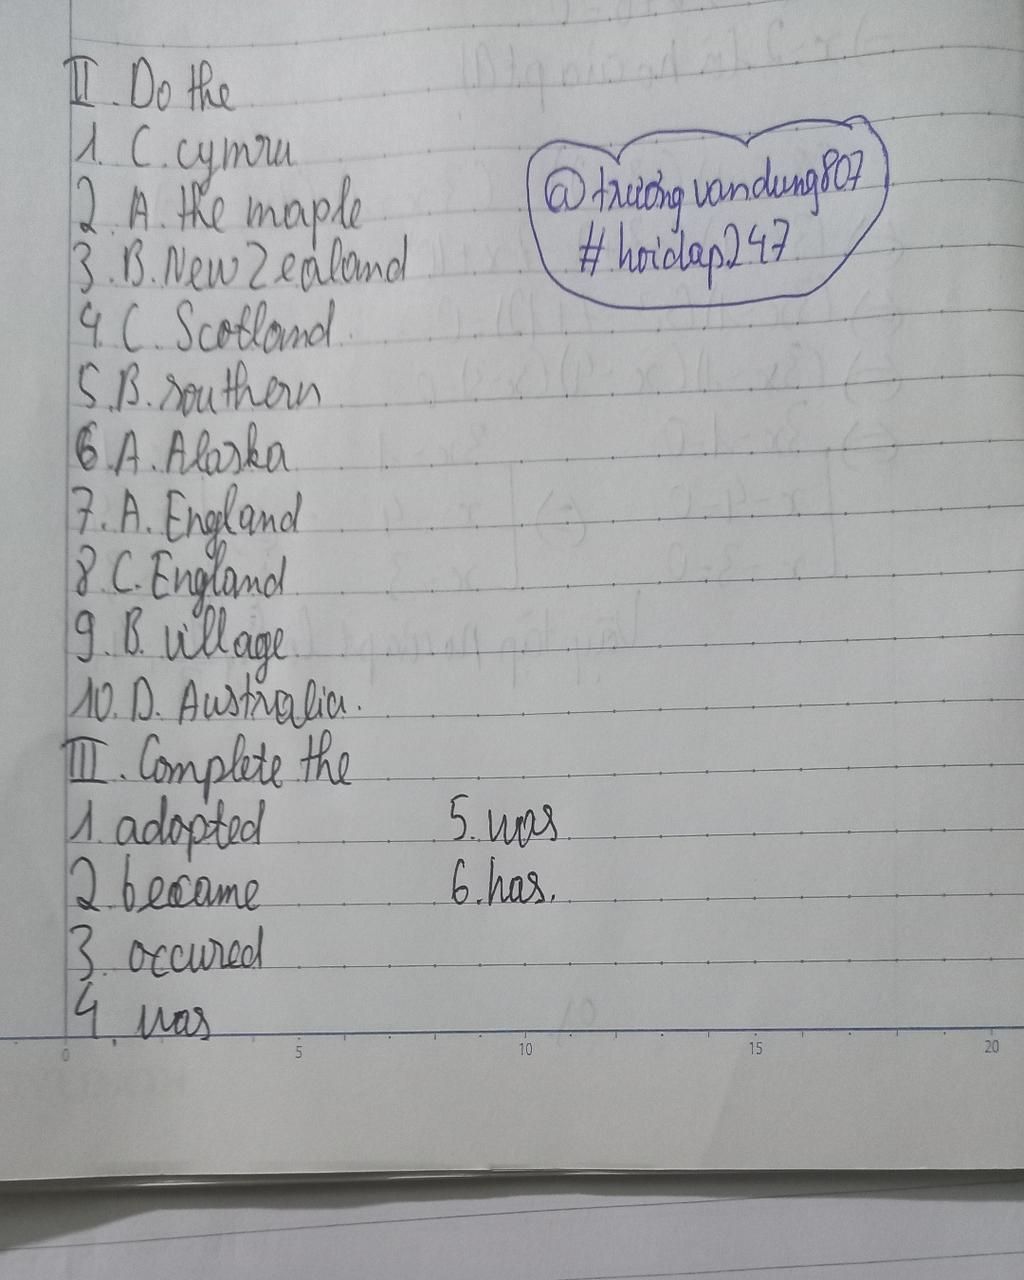 II. Do the
1. C. cymru
2. A. the maple
3. B. New Zealand
4. C. Scotland.
5. B. southern
6. A. Alaska
7. A. England
8. C. England
9. B. village
10. D. Australia.
@trườngvandung807
#hoidap247
III. Complete the
1. adopted
2. became
3. occured
4. was
5. was
6. has.
0 5 10 15 20